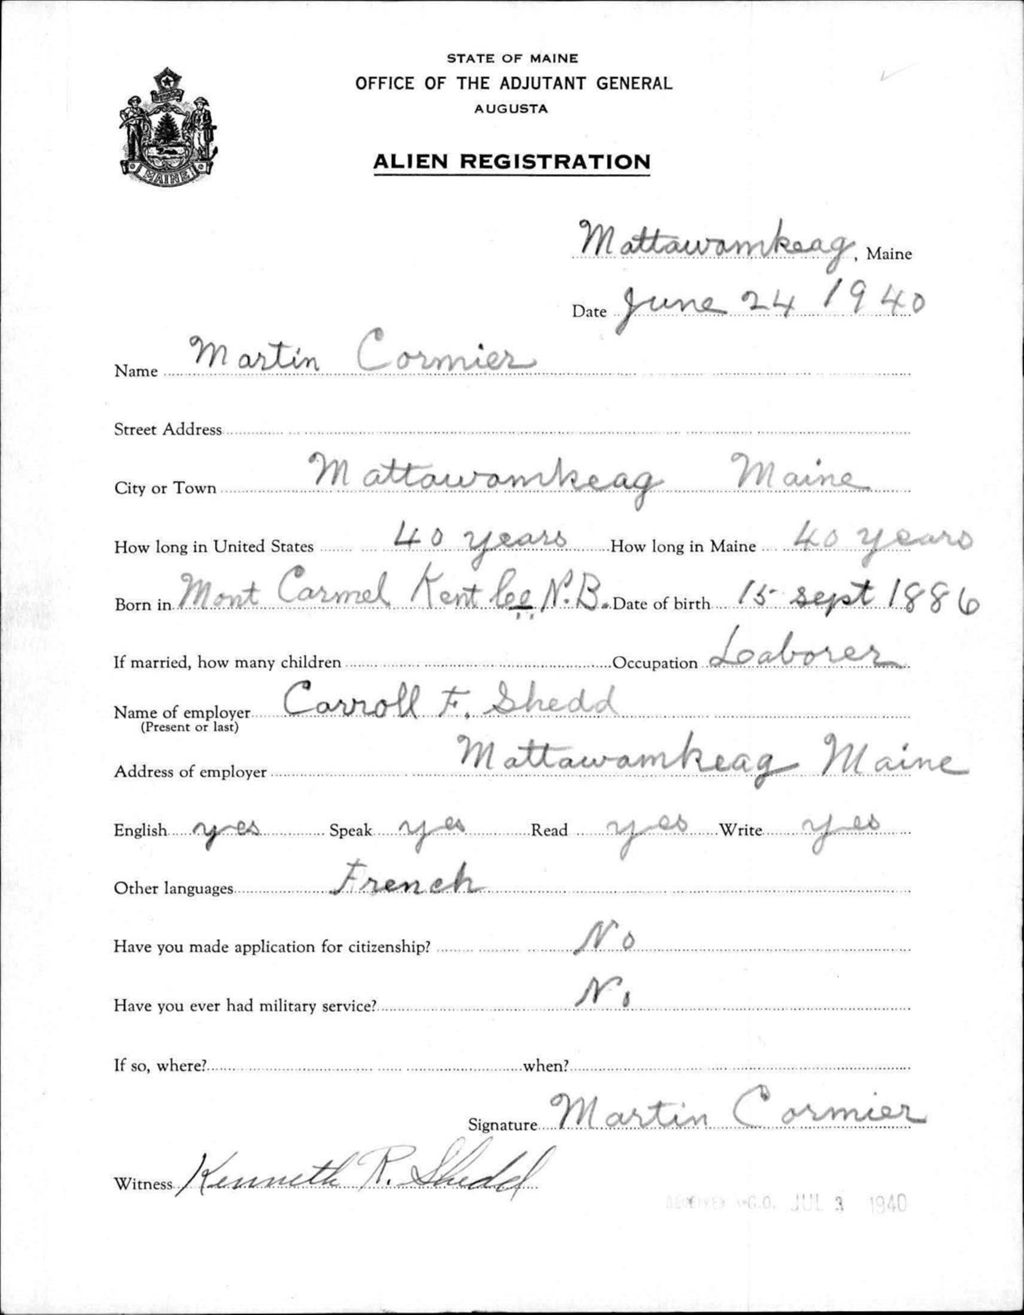 STATE OF MAINE
OFFICE OF THE ADJUTANT GENERAL
AUGUSTA
ALIEN REGISTRATION
MAINE
Mattawamkeag, Maine
Date June 24 1940
Name Martin Cormier
Street Address
City or Town Mattawamkeag Maine
How long in United States 40 years How long in Maine 40 years
Born in Mont Carmel Kent Co N.B. Date of birth 15 sept 1886
If married, how many children Occupation Laborer
Name of employer Carroll F. Shedd
(Present or last)
Address of employer Mattawamkeag Maine
English yes Speak yes Read yes Write yes
Other languages French
Have you made application for citizenship? No
Have you ever had military service? No
If so, where? when?
Signature Martin Cormier
Witness Kenneth R. Shedd
RECEIVED A.G.O. JUL 3 1940